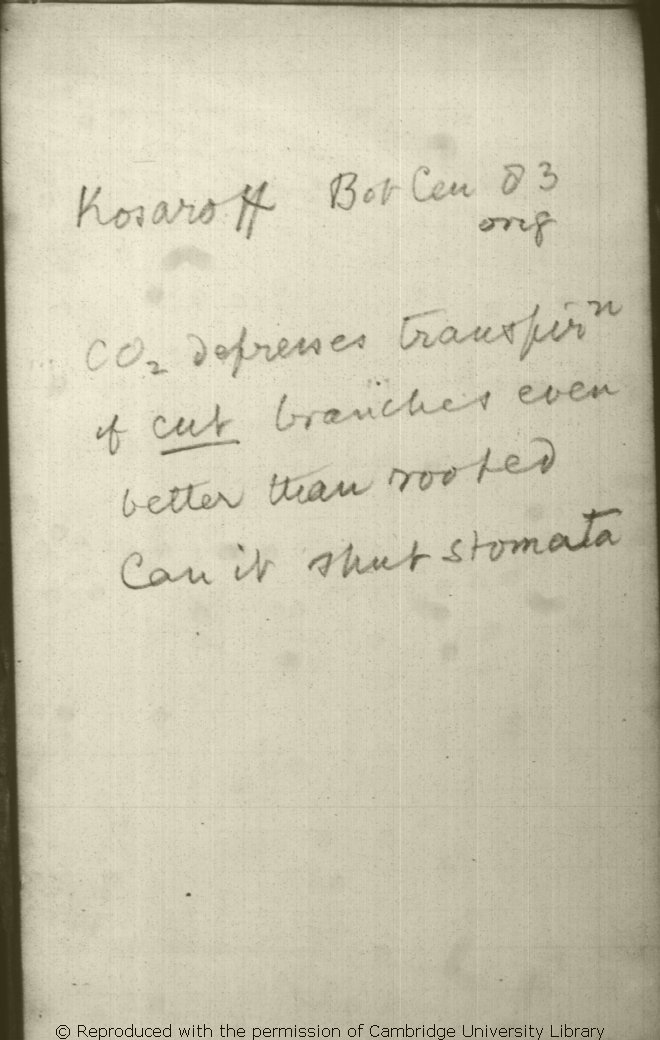 Kosaroff Bot Cen 83
orig
CO₂ depresses transpirⁿ
of cut branches even
better than rooted
Can it shut stomata
© Reproduced with the permission of Cambridge University Library